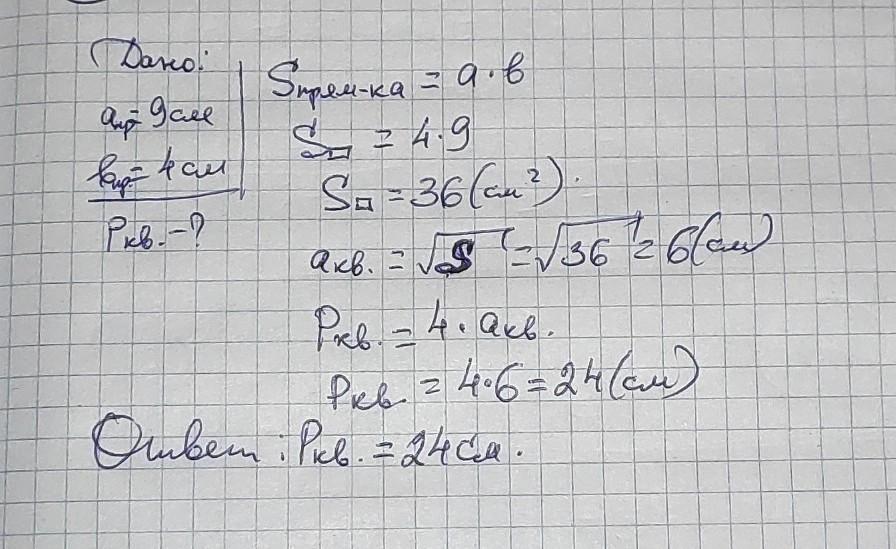 Дано:
aпр = 9 см
bпр. = 4 см
Pкв. - ?
Sпрям-ка = a · b
S▭ = 4 · 9
S□ = 36 (см²).
aкв. = √S = √36 = 6 (см)
Pкв. = 4 · aкв.
Pкв. = 4 · 6 = 24 (см)
Ответ: Pкв. = 24 см.